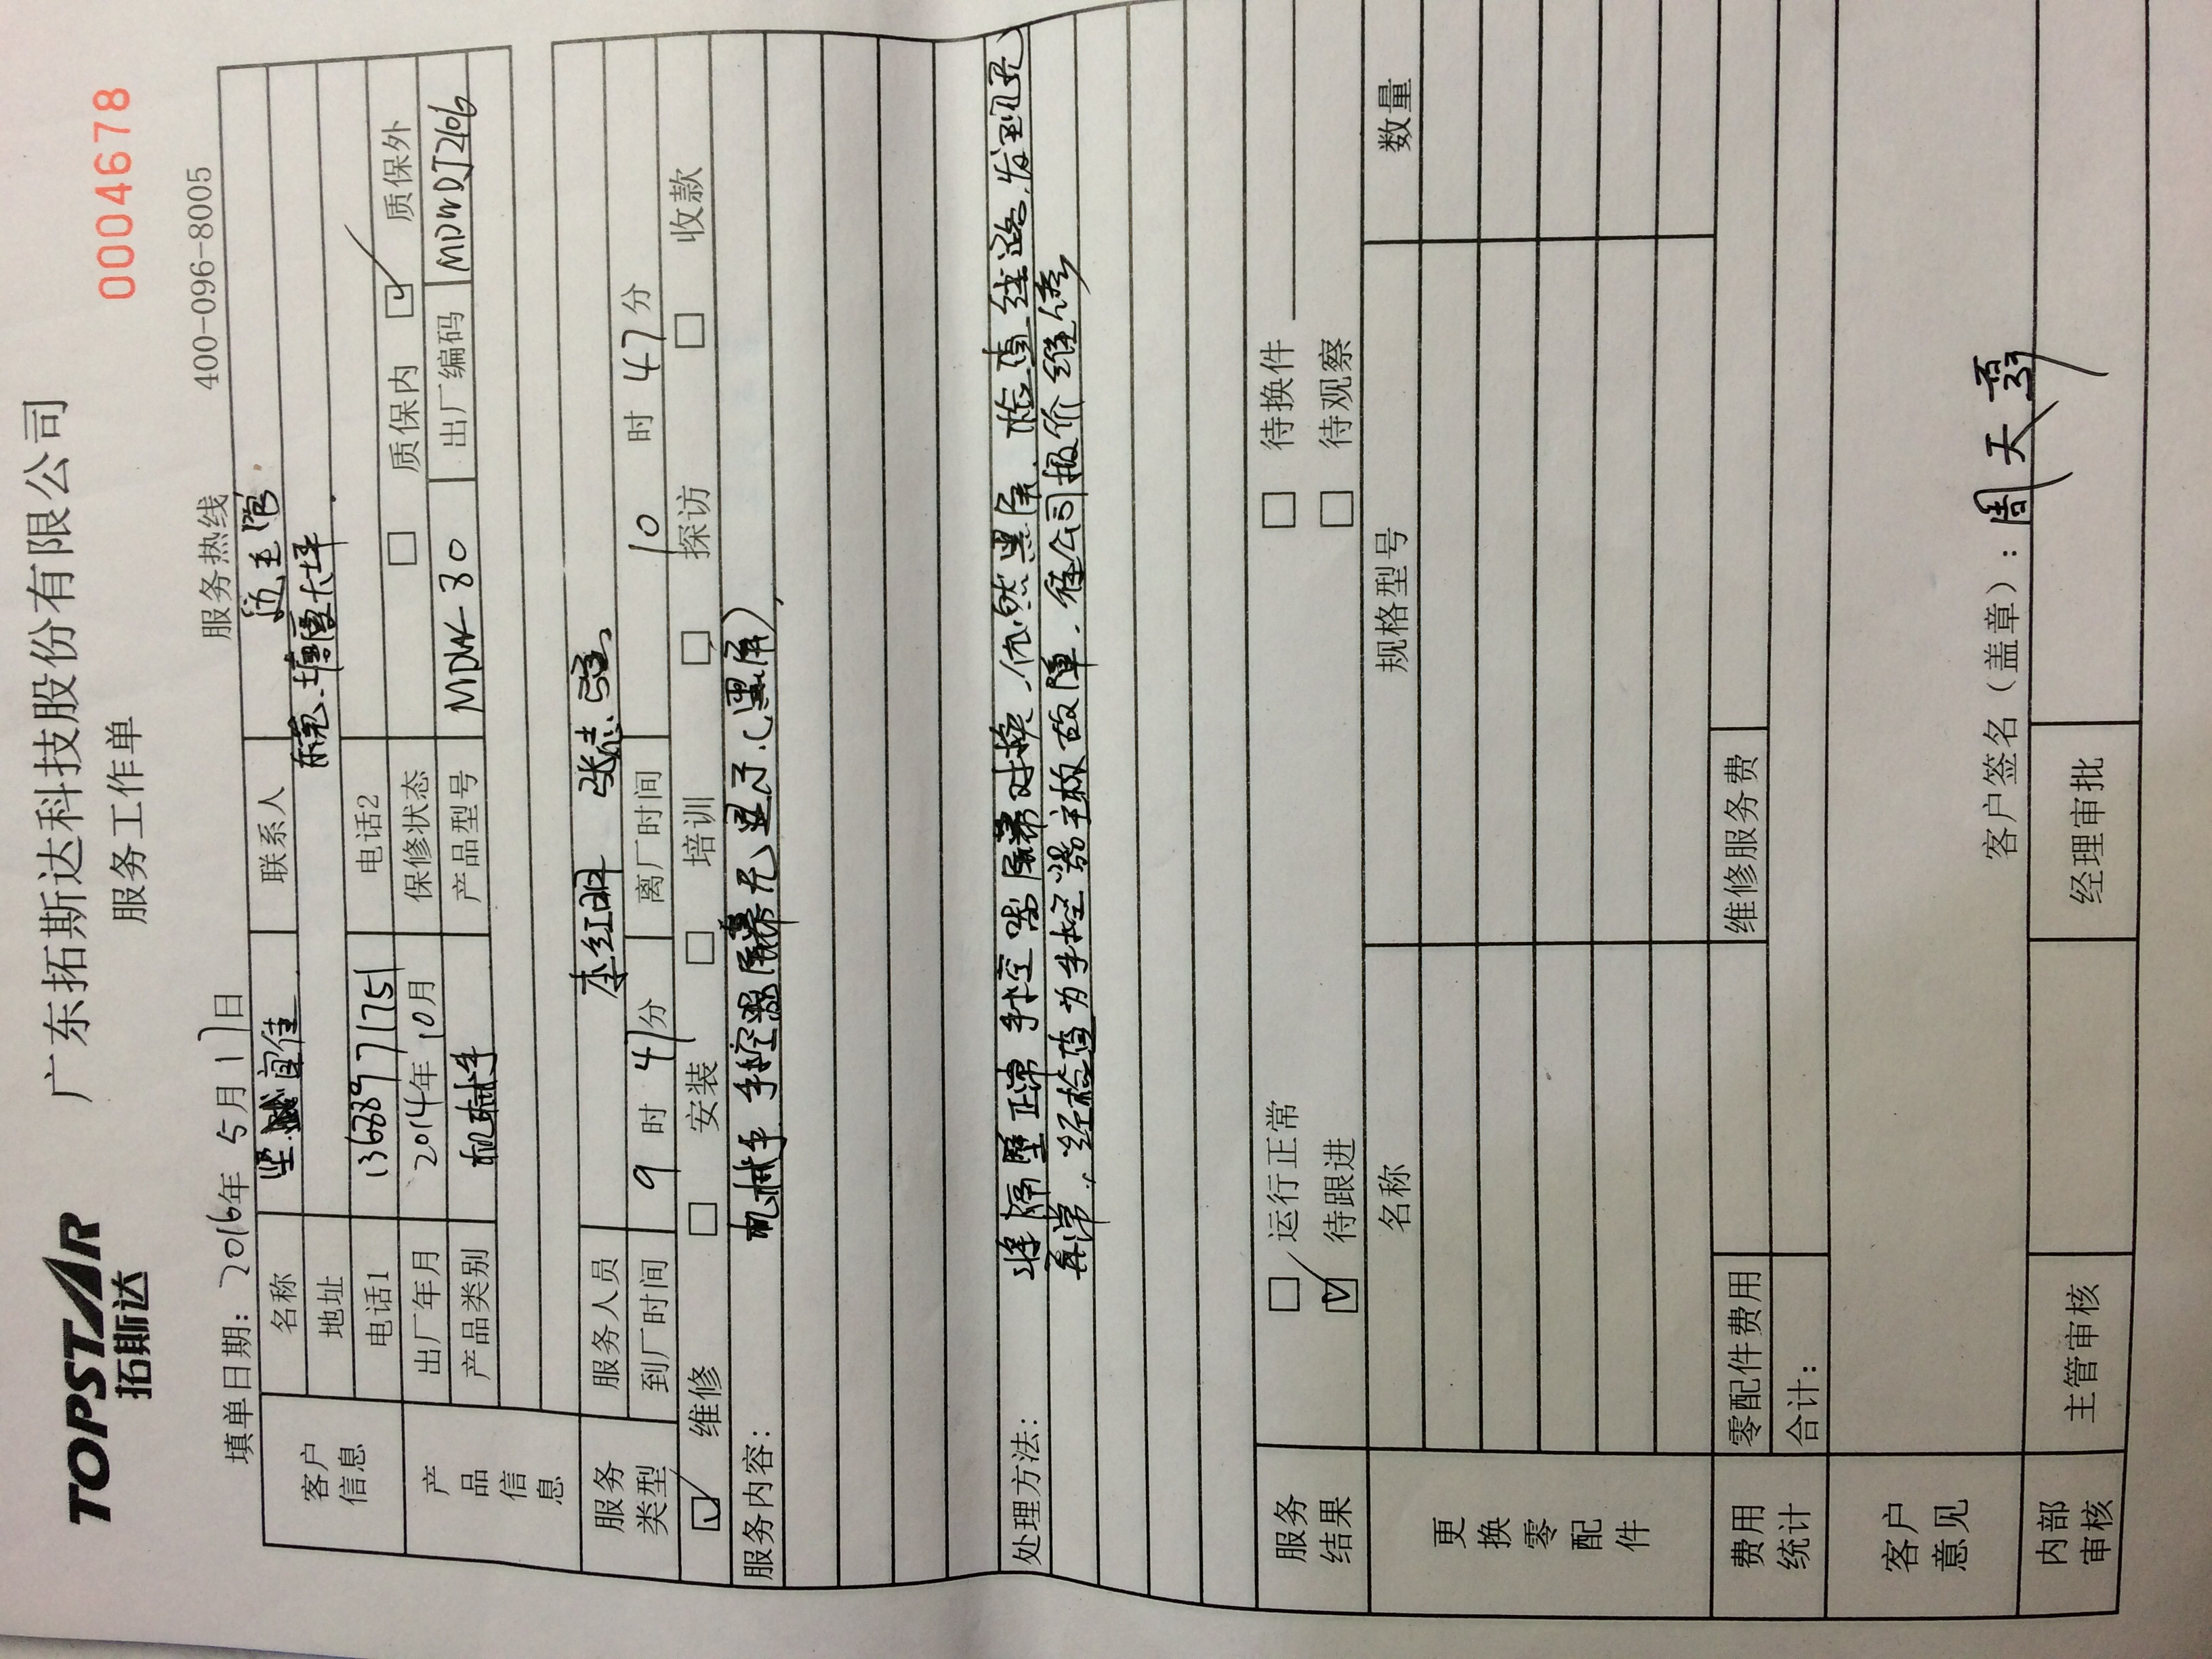 TOPSTAR
拓斯达
广东拓斯达科技股份有限公司
服务工作单
0004678
填单日期: 2016年 5月 17日 服务热线 400-096-8005
客户信息 名称 坚 宜佳 联系人 伍主管
地址 东莞.塘厦大坪
电话1 13688971751 电话2
产品信息 出厂年月 2014年 10月 保修状态 □ 质保内 ☑ 质保外
产品类别 机械手 产品型号 MDW-80 出厂编码 MDWDJ2106
服务类型 服务人员 李红明 张志
到厂时间 9 时 47分 离厂时间 10 时 47分
☑ 维修 □ 安装 □ 培训 □ 探访 □ 收款
服务内容:
机械手 手控器屏幕无显示.(黑屏)
处理方法:
将隔壁正常手控器屏幕对换.依然黑屏.检查线路.发现无
异常.经检查为手控器主板故障.待公司报价维修
服务结果 □ 运行正常 □ 待换件
☑ 待跟进 □ 待观察
更换零配件 名称 规格型号 数量
费用统计 零配件费用 维修服务费
合计:
客户意见
客户签名(盖章): 周天
内部审核 主管审核 经理审批